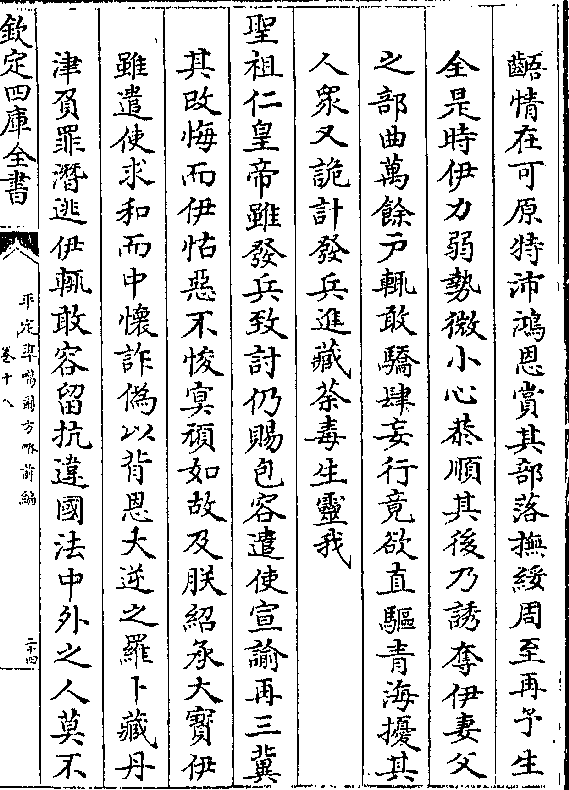 齬情在可原特沛鴻恩賞其部落撫綏周至再予生
全是時伊力弱勢微小心恭順其後乃誘奪伊妻父
之部曲萬餘戸輒敢驕肆妄行竟欲直驅青海擾其
人衆又詭計發兵進藏荼毒生靈我
聖祖仁皇帝雖發兵致討仍賜包容遣使宣諭再三冀
其改悔而伊怙惡不悛冥頑如故及朕紹承大寶伊
雖遣使求和而中懷詐僞以背恩大逆之羅卜藏丹
津負罪潛逃伊輒敢容留抗違國法中外之人莫不
欽定四庫全書
平定凖噶爾方略前編
卷十八
二十四